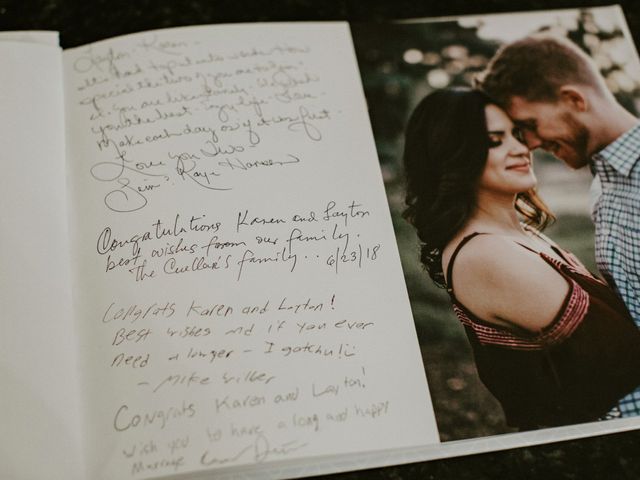 Layton & Karen -
special the two of you are today.
you the best. Enjoy life. Love.
Make each day as if it was first.
Love You Two
Kaye Hansen
Congratulations Karen and Layton
best wishes from our family.
The Cuellar's family.. 6/23/18
Congrats Karen and Layton!
Best wishes and if you ever
need a lawyer - I gotchu!
- Mike Wilber
Congrats Karen and Layton!
Wish you to have a long and happy
Marriage